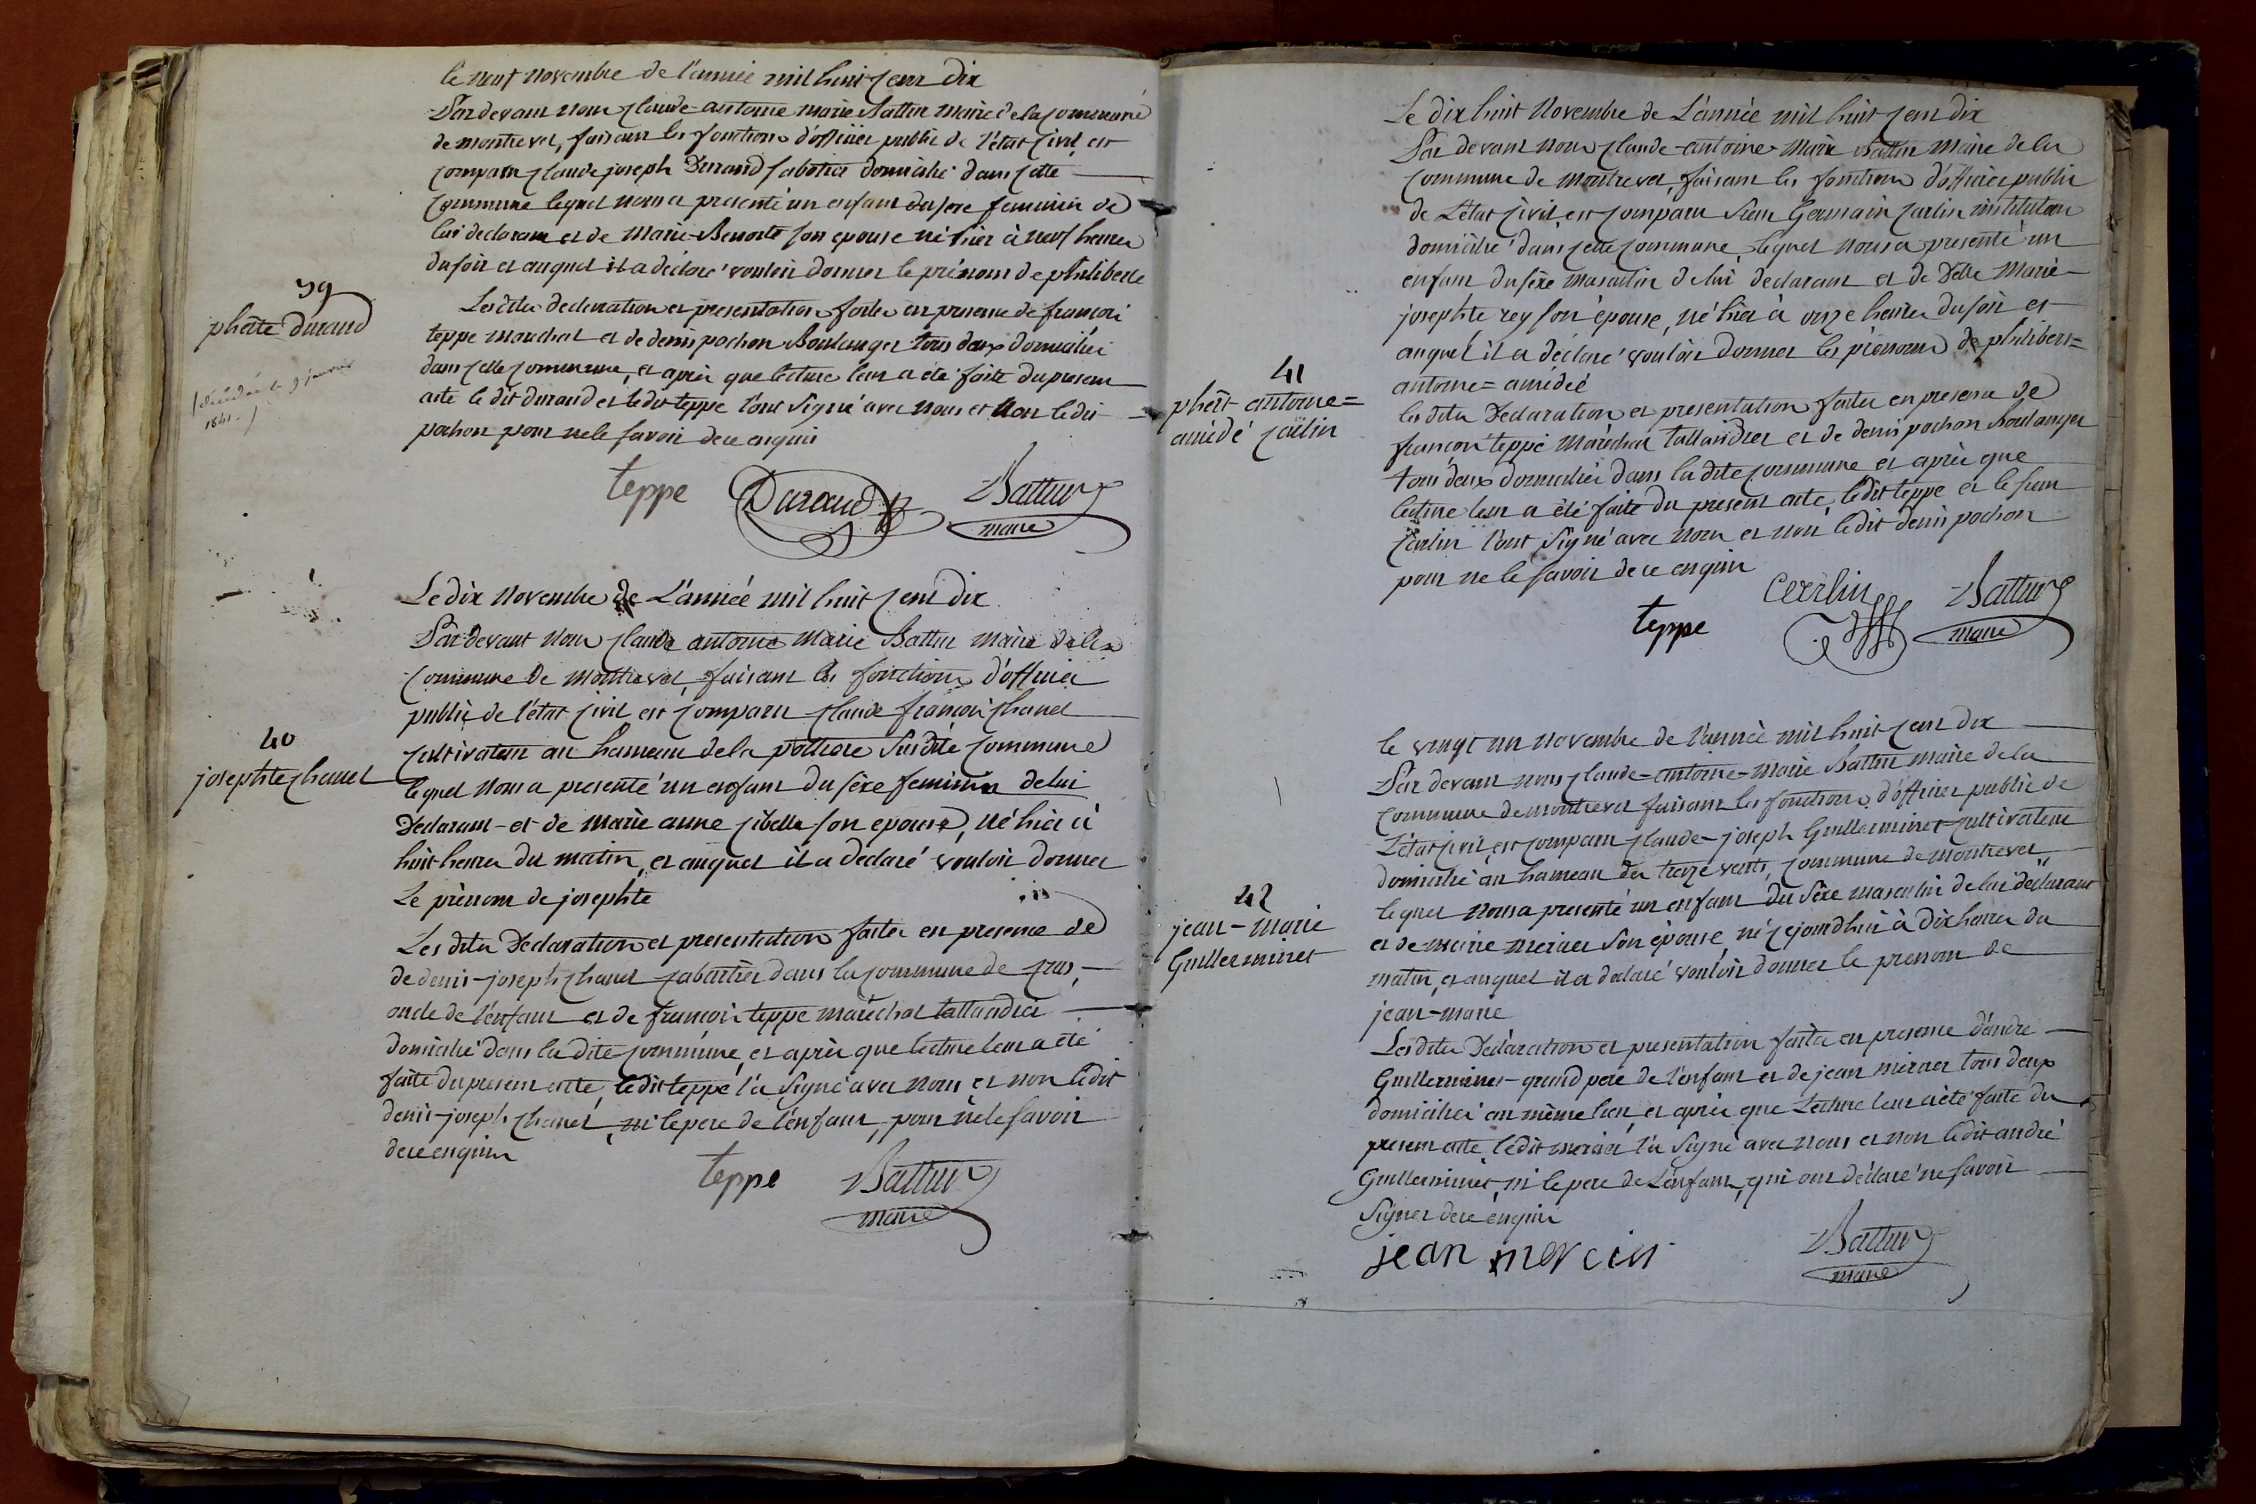 le neuf novembre de l'année mil huit cent dix
Pardevant nous claude-antoine marie Battur maire de la commune
de montrevel, faisant les fonctions d'officier public de l'état civil est
comparu claude joseph Durand sabotier domicilié dans cette
commune lequel nous a presenté un enfant du sexe feminin de
lui declarant et de Marie Benoite son epouse né hier à neuf heures
du soir et auquel il a déclaré vouloir donner le prénom de philiberte
39
phlte durand
décédée le 9 janvier
1841.
Les dites declaration et presentation faites en presence de françois
teppe marechal et de denis pochon Boulanger tous deux domiciliés
dans cette commune, et après que lecture leur a été faite du present
acte le dit durand et le dit teppe l'ont signé avec nous et non le dit
pochon pour ne le savoir de ce enquis
teppe Durand Battur
maire
Le dix Novembre de L'année mil huit cent dix
Pardevant Nous claude antoine Marie Battur maire de la
commune de montrevel, faisant les fonctions d'officier
public de l'état civil est comparu claude françois chanel
cultivateur au hameau de la susdite commune
40
josephte chanel
lequel nous a presenté un enfant du sexe feminin de lui
Declarant et de marie anne cibelle son epouse, né hier à
huit heures du matin, et auquel il a declaré vouloir donner
Le prénom de josephte
Les dites Declaration et presentation faites en presence de
de denis-joseph chanel sabottier dans la commune de cras,
oncle de l'enfant et de françois teppe maréchal tallandier
domicilié dans la dite commune, et après que lecture leur a été
faite du present acte, le dit teppe l'a signé avec nous et non le dit
denis-joseph chanel, ni le pere de l'enfant, pour ne le savoir
de ce enquis
teppe Battur
maire
Le dix huit Novembre de L'année mil huit cent dix
Par devant nous claude-antoine-Marie Battur Maire de la
commune de Montrevel, faisant les fonctions d'officier public
de L'état civil est comparu sieur Germain Carlin instituteur
domicilié dans cette commune, lequel nous a presenté un
enfant du sexe masculin de lui declarant et de delle Marie
josephte rey son épouse, né hier à onze heures du soir et
auquel il a déclaré vouloir donner les prénoms de philibert=
antoine=amédée
41
phbt-antoine=
amédé carlin
les dites Declaration et presentation faites en presence de
françois teppe Maréchal tallandier et de denis pochon boulanger
tous deux domiciliés dans la dite commune et après que
lecture leur a été faite du present acte, le dit teppe et le sieur
Carlin l'ont signé avec nous et non le dit denis pochon
pour ne le savoir de ce enquis
teppe Carlin Battur
maire
le vingt un novembre de l'année mil huit cent dix
Par devant nous claude-antoine-Marie Battur maire de la
commune de montrevel faisant les fonctions d'officier public de
L'état civil est comparu claude-joseph Guillerminet cultivateur
domicilié au hameau des treize vents, commune de montrevel
42
jean-marie
Guillerminet
lequel nous a presenté un enfant du sexe masculin de lui déclarant
et de marie mercier son épouse, né cejourdhui à dix heures du
matin, et auquel il a declaré vouloir donner le prenom de
jean-marie
Les dites Déclaration et presentation faites en presence d'andré
Guillerminet grand pere de l'enfant et de jean mercier tous deux
domiciliés au même lieu, et après que Lecture leur a été faite du
present acte, le dit mercier l'a signé avec nous et non le dit andré
Guillerminet, ni le pere de L'enfant, qui ont déclaré ne savoir
signer de ce enquis
jean mercier Battur
maire